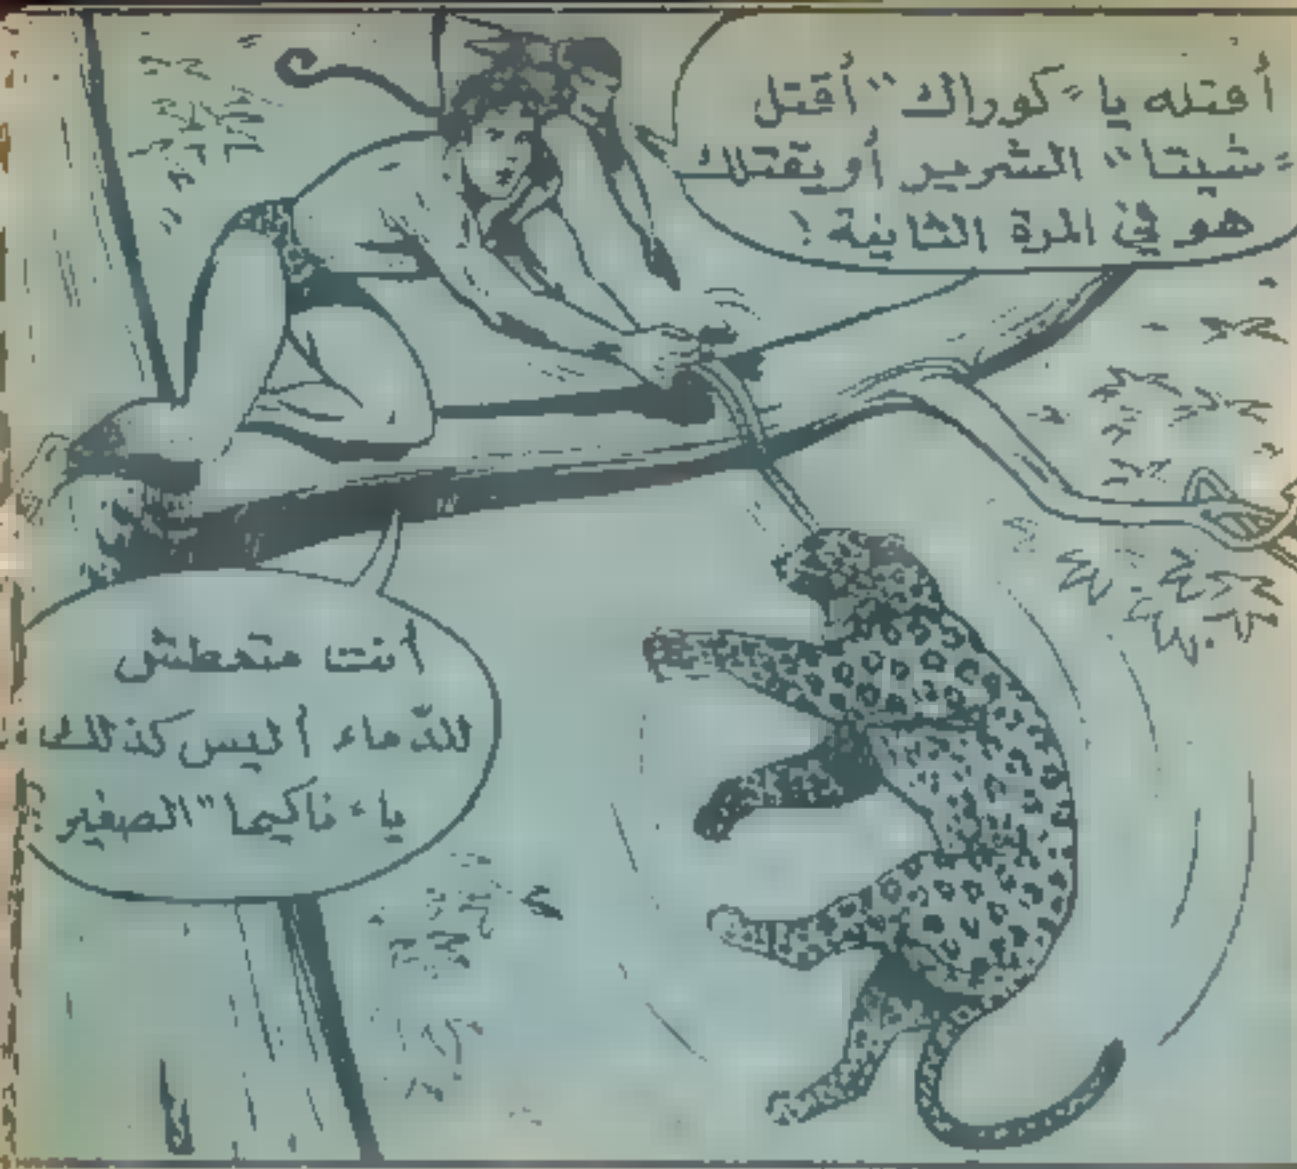 أقتله يا "كوراك" أقتل
"شيتا" الشرير أو يقتلك
هو في المرة الثانية !
أنت متعطش
للدّماء أليس كذلك
يا "ناكيما" الصغير ؟